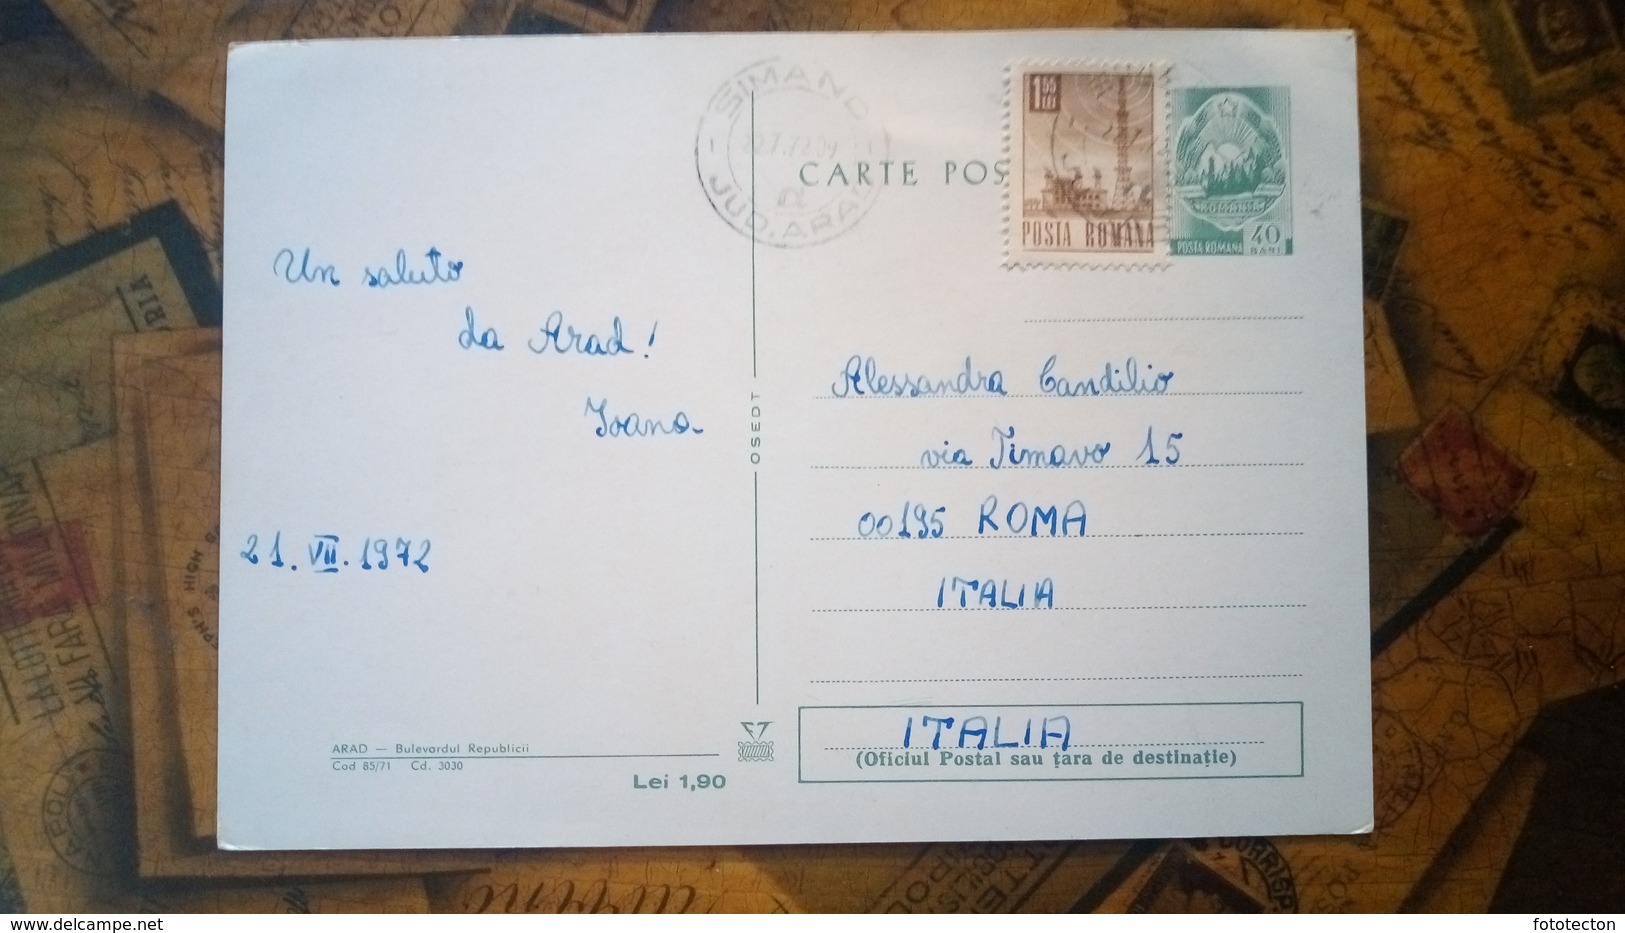 SIMAND
22.7.72.09
JUD. ARAD
CARTE POȘ
1,55
LEI
POSTA ROMANA
ROMÂNIA
POSTA ROMANA 40
BANI
Un saluto
da Arad!
Ioana
21. VII. 1972
OSEDT
Alessandra Candilio
via Timavo 15
00195 ROMA
ITALIA
ITALIA
(Oficiul Postal sau țara de destinație)
ARAD — Bulevardul Republicii
Cod 85/71 Cd. 3030
Lei 1,90
fototecton